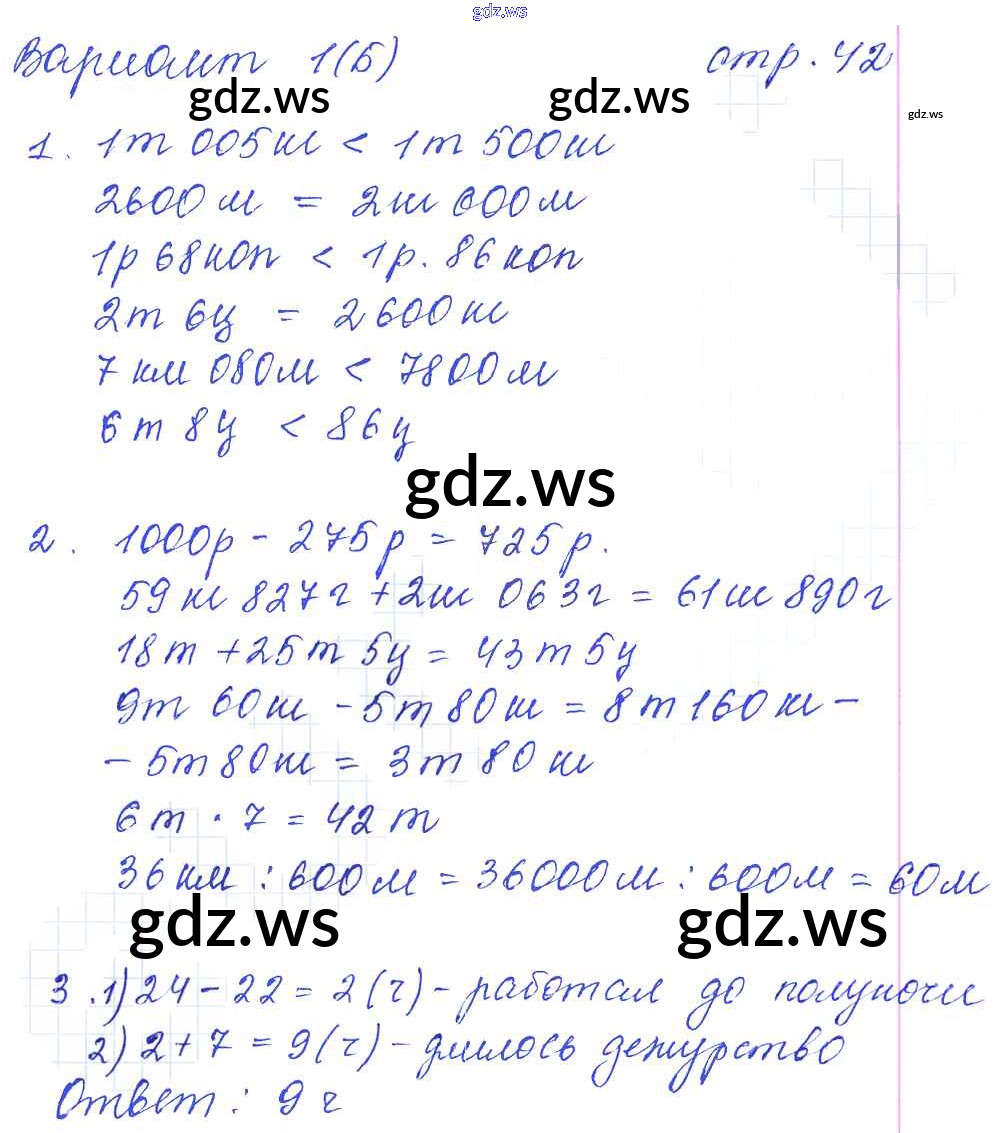 gdz.ws
Вариант 1(Б) стр. 42
gdz.ws gdz.ws
gdz.ws
1. 1т 005кг < 1т 500кг
2600м = 2км 600м
1р 68коп < 1р. 86коп
2т 6ц = 2600кг
7км 080м < 7800м
6т 8ц < 86ц
gdz.ws
2. 1000р - 275р = 725р.
59кг 827г + 2кг 063г = 61кг 890г
18т + 25т 5ц = 43т 5ц
9т 60кг - 5т 80кг = 8т 160кг -
- 5т 80кг = 3т 80кг
6т · 7 = 42т
36км : 600м = 36000м : 600м = 60м
gdz.ws gdz.ws
3. 1) 24 - 22 = 2(ч) - работал до полуночи
2) 2 + 7 = 9(ч) - длилось дежурство
Ответ: 9ч